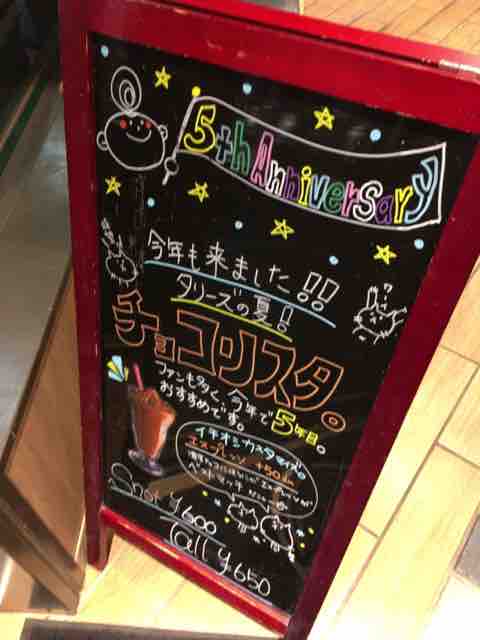 5th Anniversary
今年も来ました!!
タリーズの夏!
チョコリスタ。
ファンも多く、今年で5年目。
おすすめです。
イチオシカスタマイズ。
エスプレッソ +50
Short ¥600
Tall ¥650